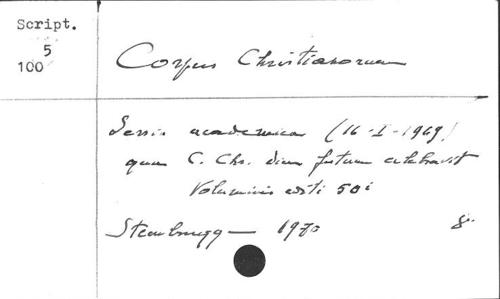 Script.
5
100
Corpus Christianorum
Sessio academica (16-I-1969)
quam C. Chr. diem festum celebravit
Voluminis editi 50i
Steenbrugg — 1970 8º